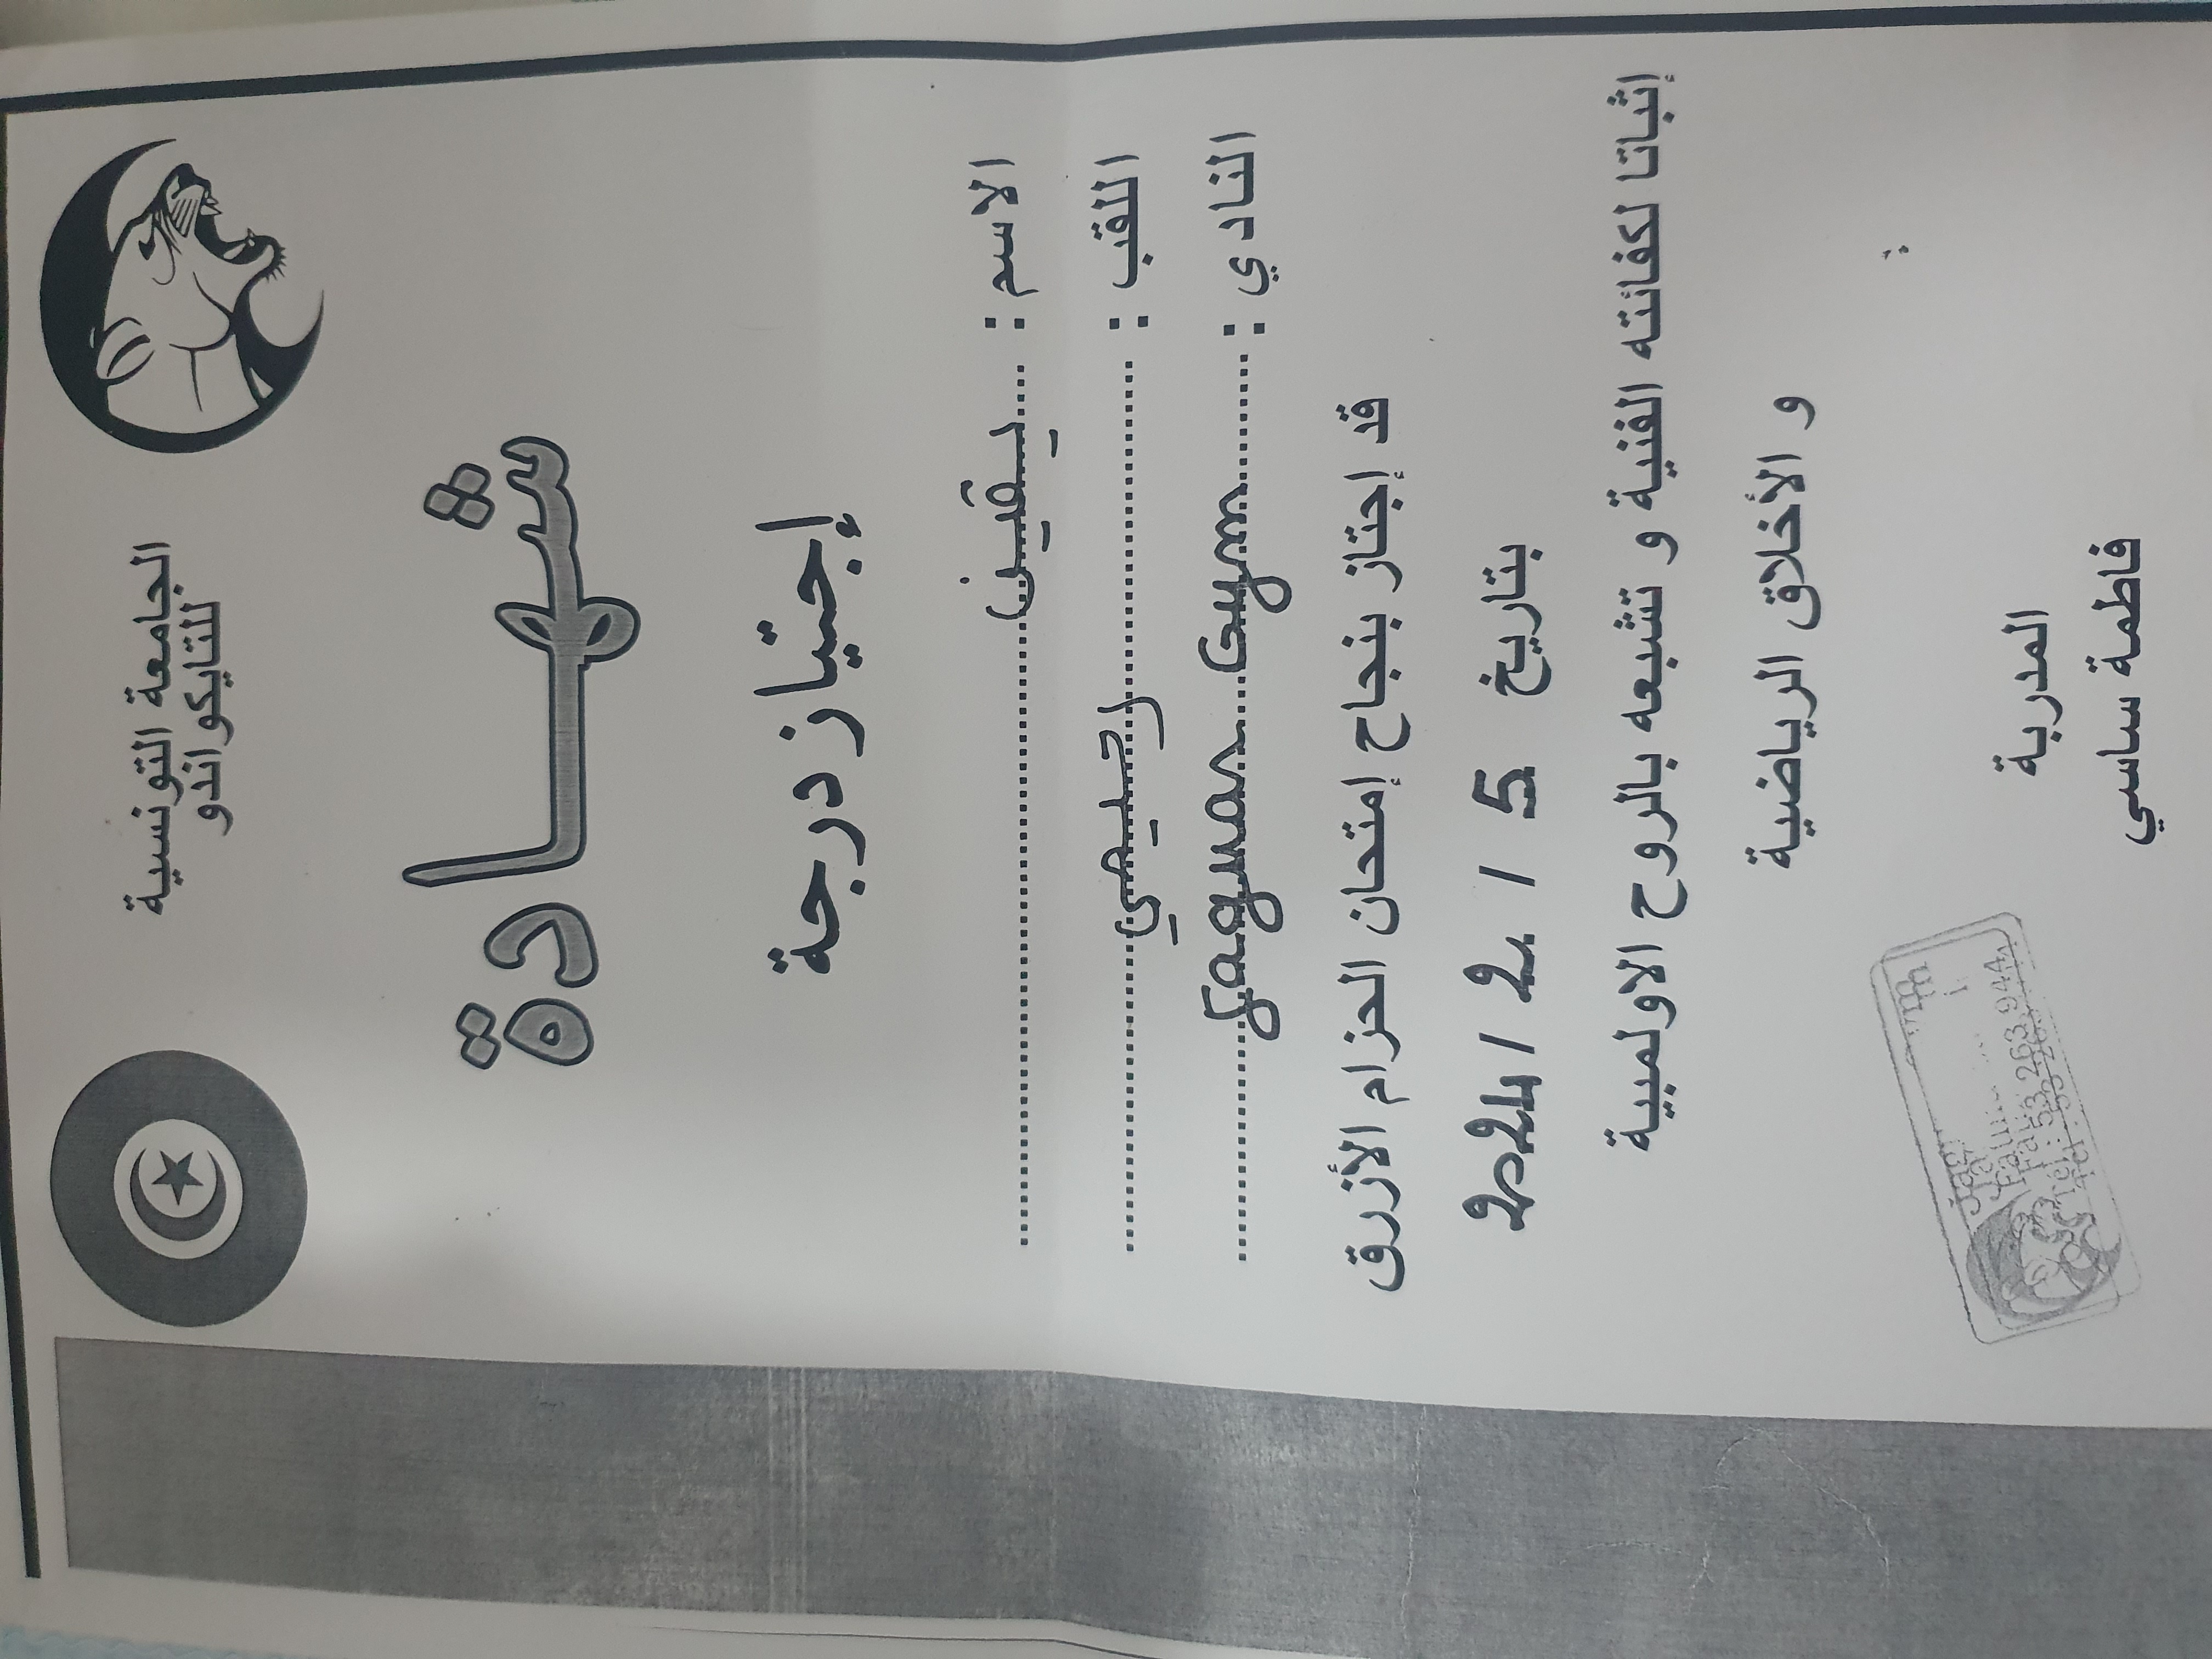 الجامعة التونسية
للتايكواندو
شهادة
إجتياز درجة
الاسم : يقين
اللقب : رحيمي
النادي : Jaguar Gym
قد إجتاز بنجاح إمتحان الحزام الأزرق
بتاريخ 5 / 2 / 2024
إثباتا لكفائته الفنية و تشبعه بالروح الاولمبية
و الأخلاق الرياضية
المدربة
فاطمة ساسي
Tel : 53 263 944